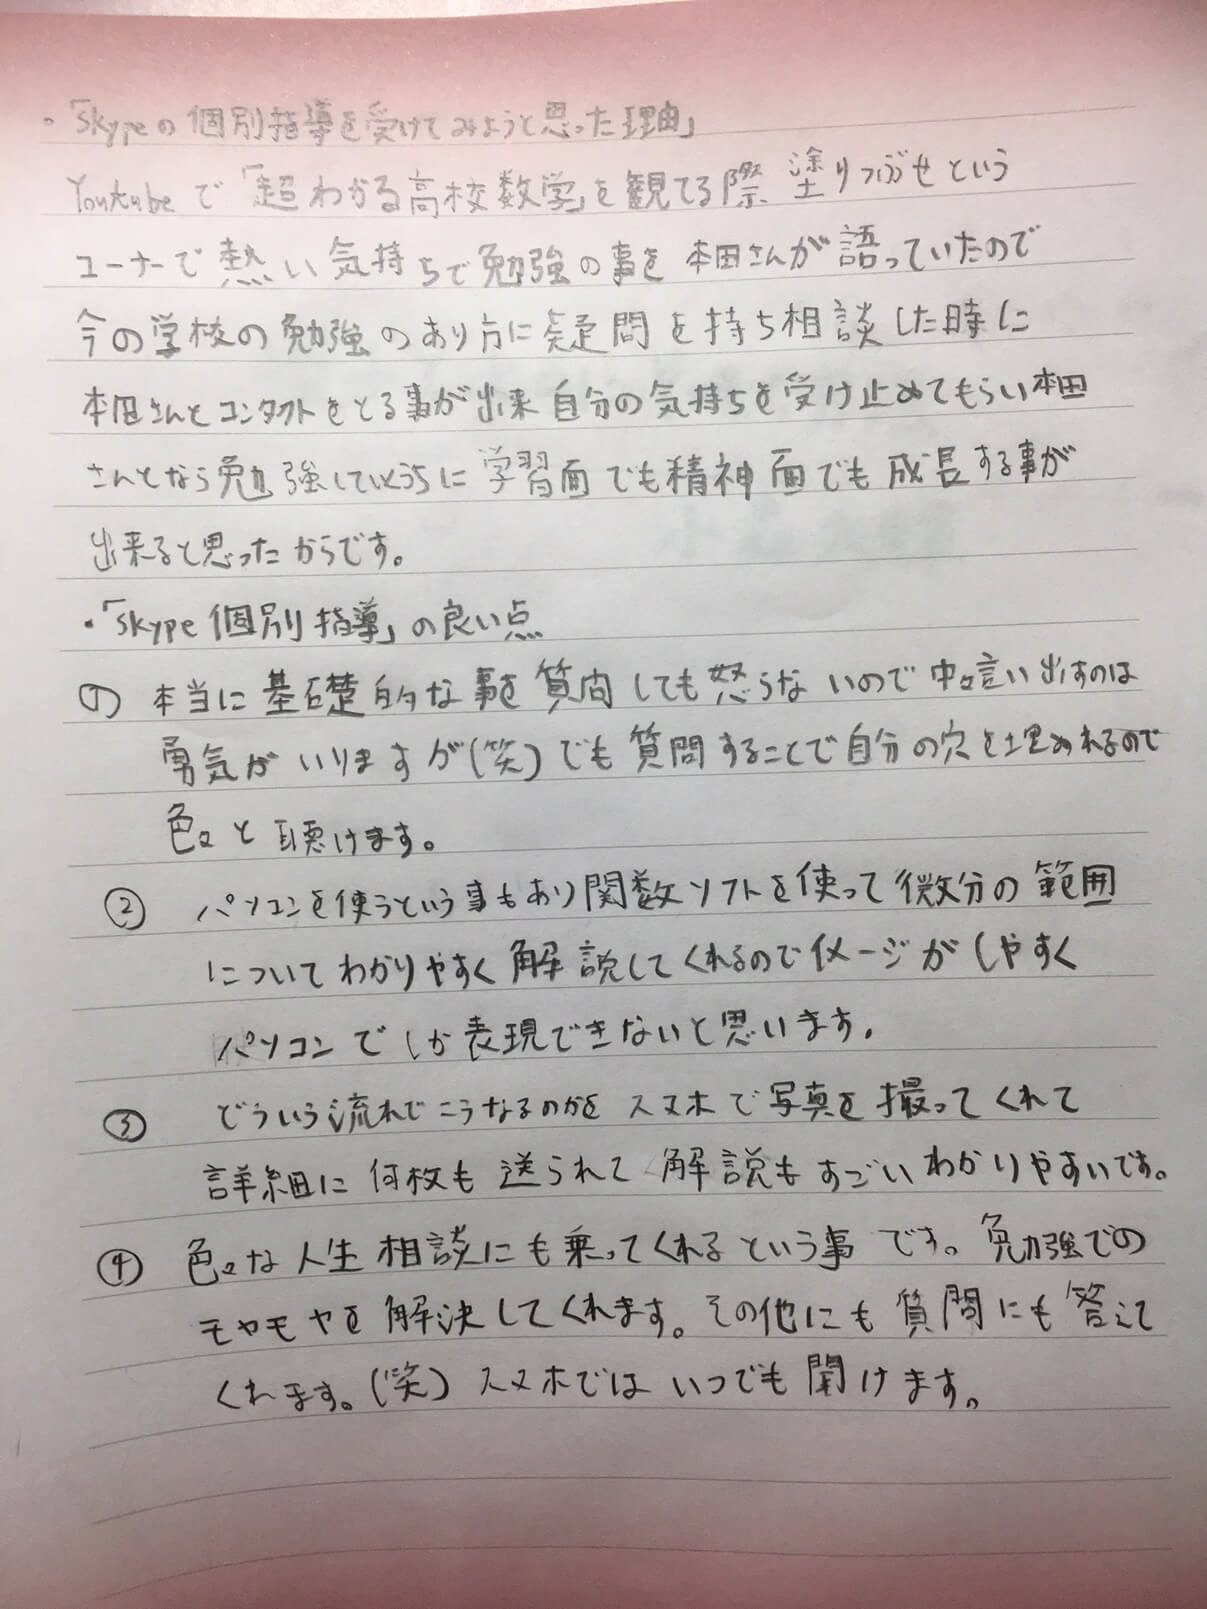 ・「Skypeの個別指導を受けてみようと思った理由」
Youtubeで「超わかる高校数学」を観てる際 塗りつぶせという
コーナーで熱い気持ちで勉強の事を本田さんが語っていたので
今の学校の勉強のあり方に疑問を持ち相談した時に
本田さんとコンタクトをとる事が出来自分の気持ちを受け止めてもらい本田
さんとなら勉強していくうちに学習面でも精神面でも成長する事が
出来ると思ったからです。
・「Skype個別指導」の良い点
① 本当に基礎的な事を質問しても怒らないので中々言い出すのは
勇気がいりますが(笑)でも質問することで自分の穴を埋めれるので
色々と聴けます。
② パソコンを使うという事もあり関数ソフトを使って微分の範囲
についてわかりやすく解説してくれるのでイメージがしやすく
パソコンでしか表現できないと思います。
③ どういう流れでこうなるのかをスマホで写真を撮ってくれて
詳細に何枚も送られて解説もすごいわかりやすいです。
④ 色々な人生相談にも乗ってくれるという事です。勉強での
モヤモヤを解決してくれます。その他にも質問にも答えて
くれます。(笑)スマホではいつでも聞けます。